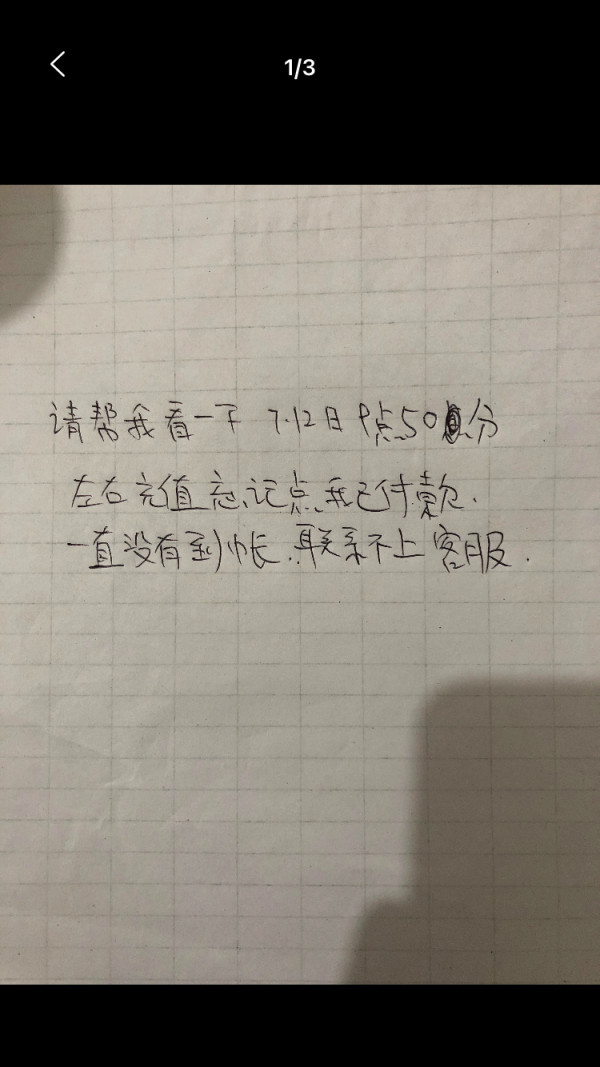 1/3
请帮我看一下 7.12日9点50分
左右充值忘记点我已付款.
一直没有到帐.联系不上客服.